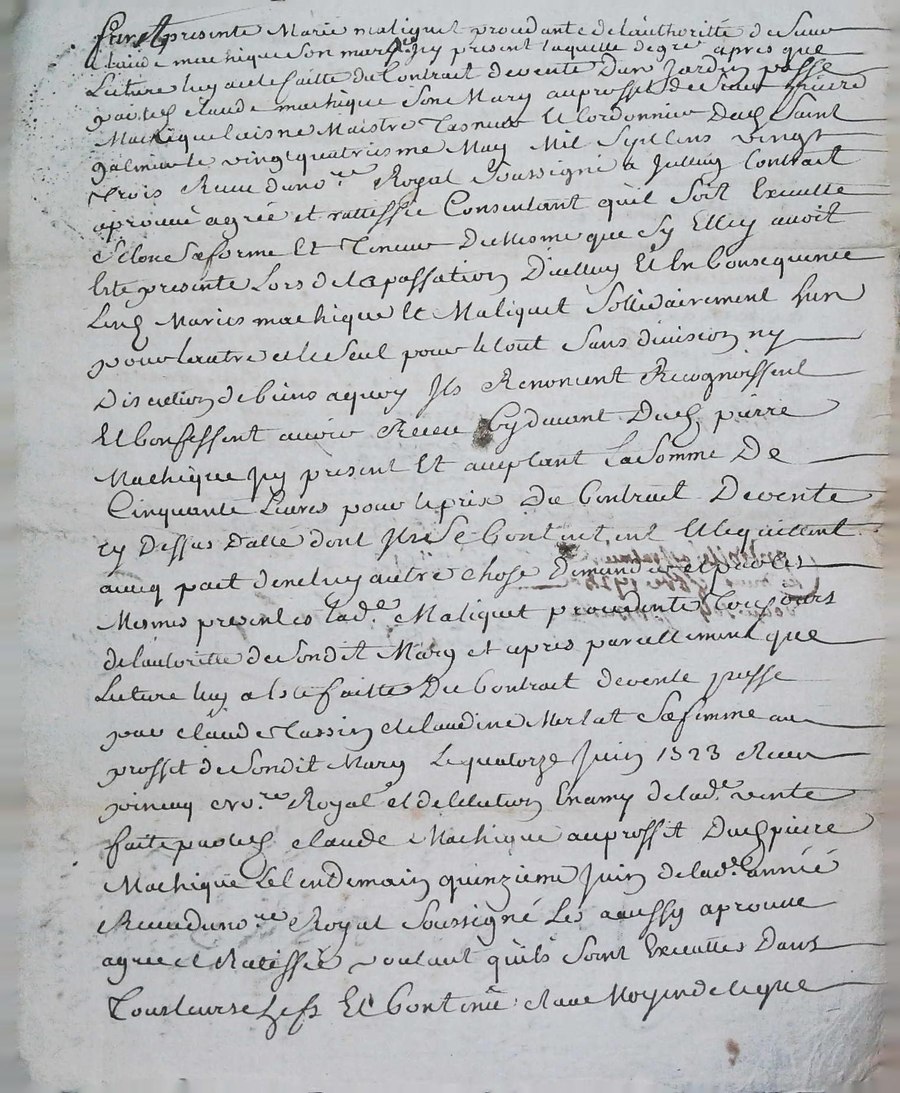 fut presente Marie maliquet procedante de l'authorité de Sieur
Claude machique Son mary Icy present laquelle de gré apres que
Lecture luy a esté faitte du Contract de vente Dun Jardin passé
par led Claude machique Son Mary au proffit de Sieur pierre
Machique laisne Maistre et Cordonnier Dud Saint
galmier le vingtquatriesme May Mil Septcens vingt
Trois Receu du no.re Royal Soussigné a Jcelluy Contract
aprouvé agréé et rattiffié Consentant qu'il Soit Executté
Selon Sa forme Et Teneur De Mesme que Sy Elle y avoit
Esté presente Lors de la passation D'icelluy Et En Consequence
Lesd Mariés machique Et Maliquet Sollidairement Lun
pour lautre et le Seul pour le tout Sans division ny
Discution de biens a quoy Jls Renoncent Recognoissent
Et Confessent avoir Receu Cydevant Dud pierre
Machique Jcy present Et aceptant La Somme De
Cinquante Livres pour le prix du Contract De vente
cy Dessus Datté dont Jls Se Contentent Et le quittent
avecq pact de ne luy autre chose Demander Es presentes
Mesmes presentes lad.e Maliquet procedante Tousjours
de lautoritte de Sondit Mary et apres pareillement que
Lecture luy a Esté faitte Du Contract de vente passé
par Claude Tassin et Claudine Merlat Sa femme au
proffit de Sondit Mary Le quatorze Juin 1723 Receu
par no.re Royal et de lelection Enamy de lad.e vente
faite par led Claude Machique au proffit Dud pierre
Machique Le lendemain quinzieme Juin de lad.e année
Receu du no.re Royal Soussigné Les a aussy aprouvé
agréé et Ratiffié voulant qu'ils Soient Executtés Dans
Tous leurs chefs Et Contenu et au Moyen de ce que